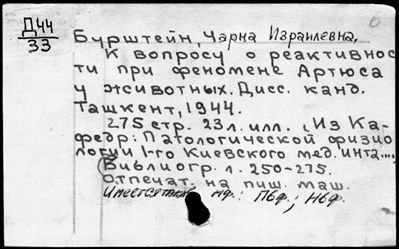 Д44
33
6
Бурштейн, Чарна Израилевна.
К вопросу о реактивнос
ти при феномене Артюса
у животных. Дисс. канд.
Ташкент, 1944.
275 стр. 23 л. илл. (Из Ка-
федр: Патологической физио
логии 1-го Киевского мед. инта...,
Библиогр. л. 250-275.
Отпечат. на пиш. маш.
нф.: Пбф.; Нбф.